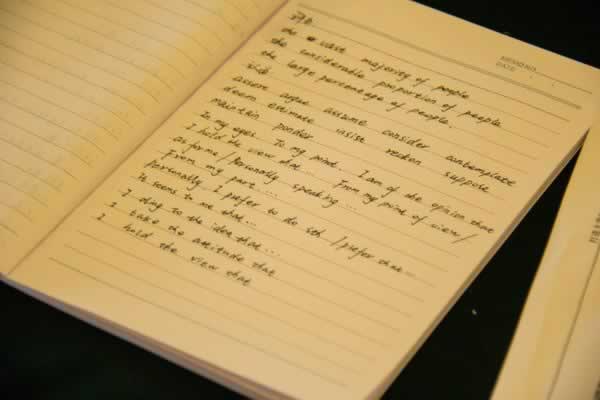 MEMO NO.
DATE
the vast majority of people
the considerable proportion of people
the large percentage of people.
assert argue assume consider contemplate
deem estimate insist reckon suppose
Maintain ponder
In my eyes. To my mind... I am of the opinion that
I hold the view that... From my point of view/
as for me / Personally speaking...
From my part...
personally I prefer to do sth / prefer that...
It seems to me that...
I cling to the idea that...
I take the attitude that
I hold the view that